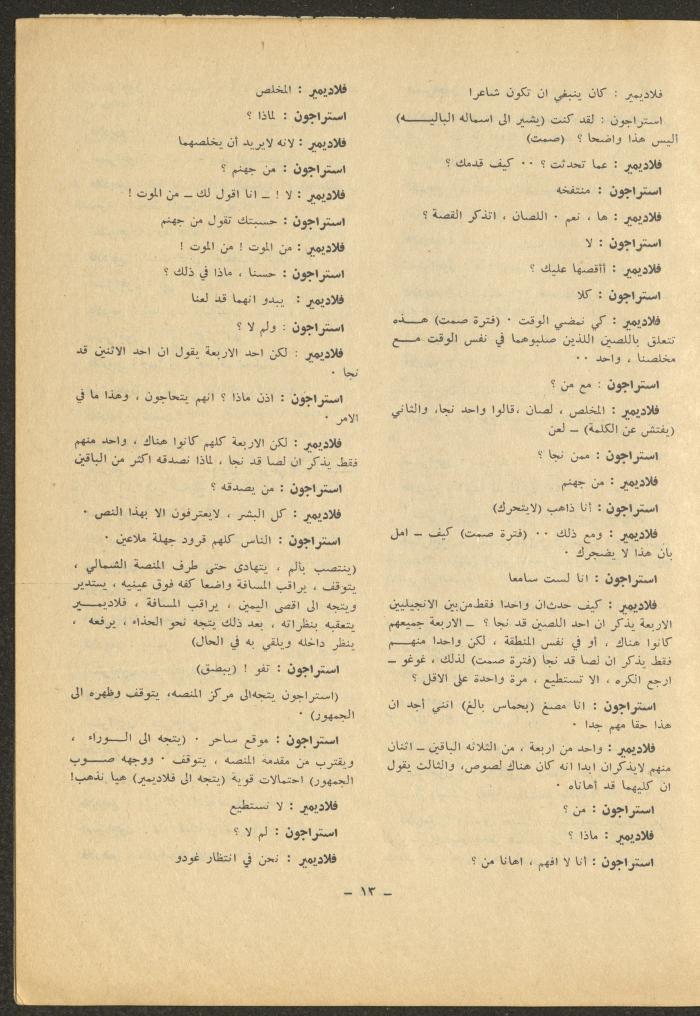 فلاديمير : كان ينبغي ان تكون شاعرا
استراجون : لقد كنت (يشير الى اسماله الباليـــه)
اليس هذا واضحا ؟ (صمت)
فلاديمير : عما تحدثت ؟ ٠٠ كيف قدمك ؟
استراجون : منتفخه
فلاديمير : ها ، نعم ٠ اللصان ، اتذكر القصة ؟
استراجون : لا
فلاديمير : أأقصها عليك ؟
استراجون : كلا
فلاديمير : كي نمضي الوقت ٠ (فترة صمت) هــذه
تتعلق باللصين اللذين صلبوهما في نفس الوقت مــع
مخلصنا ، واحد ٠٠
استراجون : مع من ؟
فلاديمير : المخلص ، لصان ،قالوا واحد نجا، والثاني
(يفتش عن الكلمة) ــ لعن
استراجون : ممن نجا ؟
فلاديمير : من جهنم
استراجون : أنا ذاهب (لايتحرك)
فلاديمير : ومع ذلك ٠٠ (فترة صمت) كيف ــ امل
بان هذا لا يضجرك ٠
استراجون : انا لست سامعا
فلاديمير : كيف حدث‌ان واحدا فقط‌من‌بين الانجيليين
الاربعة يذكر ان احد اللصين قد نجا ؟ ــ الاربعة جميعهم
كانوا هناك ، أو في نفس المنطقة ، لكن واحدا منهــم
فقط يذكر ان لصا قد نجا (فترة صمت) لذلك ، غوغو ــ
ارجع الكره ، الا تستطيع ، مرة واحدة على الاقل ؟
استراجون : انا مصغ (بحماس بالغ) انني أجد ان
هذا حقا مهم جدا ٠
فلاديمير : واحد من اربعة ، من الثلاثه الباقين ــ اثنان
منهم لايذكران ابدا انه كان هناك لصوص، والثالث يقول
ان كليهما قد أهاناه ٠
استراجون : من ؟
فلاديمير : ماذا ؟
استراجون : أنا لا افهم ، اهانا من ؟
فلاديمير : المخلص
استراجون : لماذا ؟
فلاديمير : لانه لايريد أن يخلصهما
استراجون : من جهنم ؟
فلاديمير : لا ! ــ انا اقول لك ــ من الموت !
استراجون : حسبتك تقول من جهنم
فلاديمير : من الموت ! من الموت !
استراجون : حسنا ، ماذا في ذلك ؟
فلاديمير : يبدو انهما قد لعنا
استراجون : ولم لا ؟
فلاديمير : لكن احد الاربعة يقول ان احد الاثنين قد
نجا ٠
استراجون : اذن ماذا ؟ انهم يتحاجون ، وهذا ما في
الامر ٠
فلاديمير : لكن الاربعة كلهم كانوا هناك ، واحد منهم
فقط يذكر ان لصا قد نجا ، لماذا نصدقه اكثر من الباقين
استراجون : من يصدقه ؟
فلاديمير : كل البشر ، لايعترفون الا بهذا النص ٠
استراجون : الناس كلهم قرود جهلة ملاعين ٠
(ينتصب بالم ، يتهادى حتى طرف المنصة الشمالي ،
يتوقف ، يراقب المسافة واضعا كفه فوق عينيه ، يستدير
ويتجه الى اقصى اليمين ، يراقب المسافة ، فلاديمـــير
يتعقبه بنظراته ، بعد ذلك يتجه نحو الحذاء ، يرفعه ،
ينظر داخله ويلقي به في الحال)
استراجون : تفو ! (يبصق)
(استراجون يتجه‌الى مركز المنصه، يتوقف وظهره الى
الجمهور) ٠
استراجون : موقع ساحر ٠ (يتجه الى الـــوراء ،
ويقترب من مقدمة المنصه ، يتوقف ٠ ووجهه صـــوب
الجمهور) احتمالات قوية (يتجه الى فلاديمير) هيا نذهب!
فلاديمير : لا نستطيع
استراجون : لم لا ؟
فلاديمير : نحن في انتظار غودو
ــ ١٣ ــ